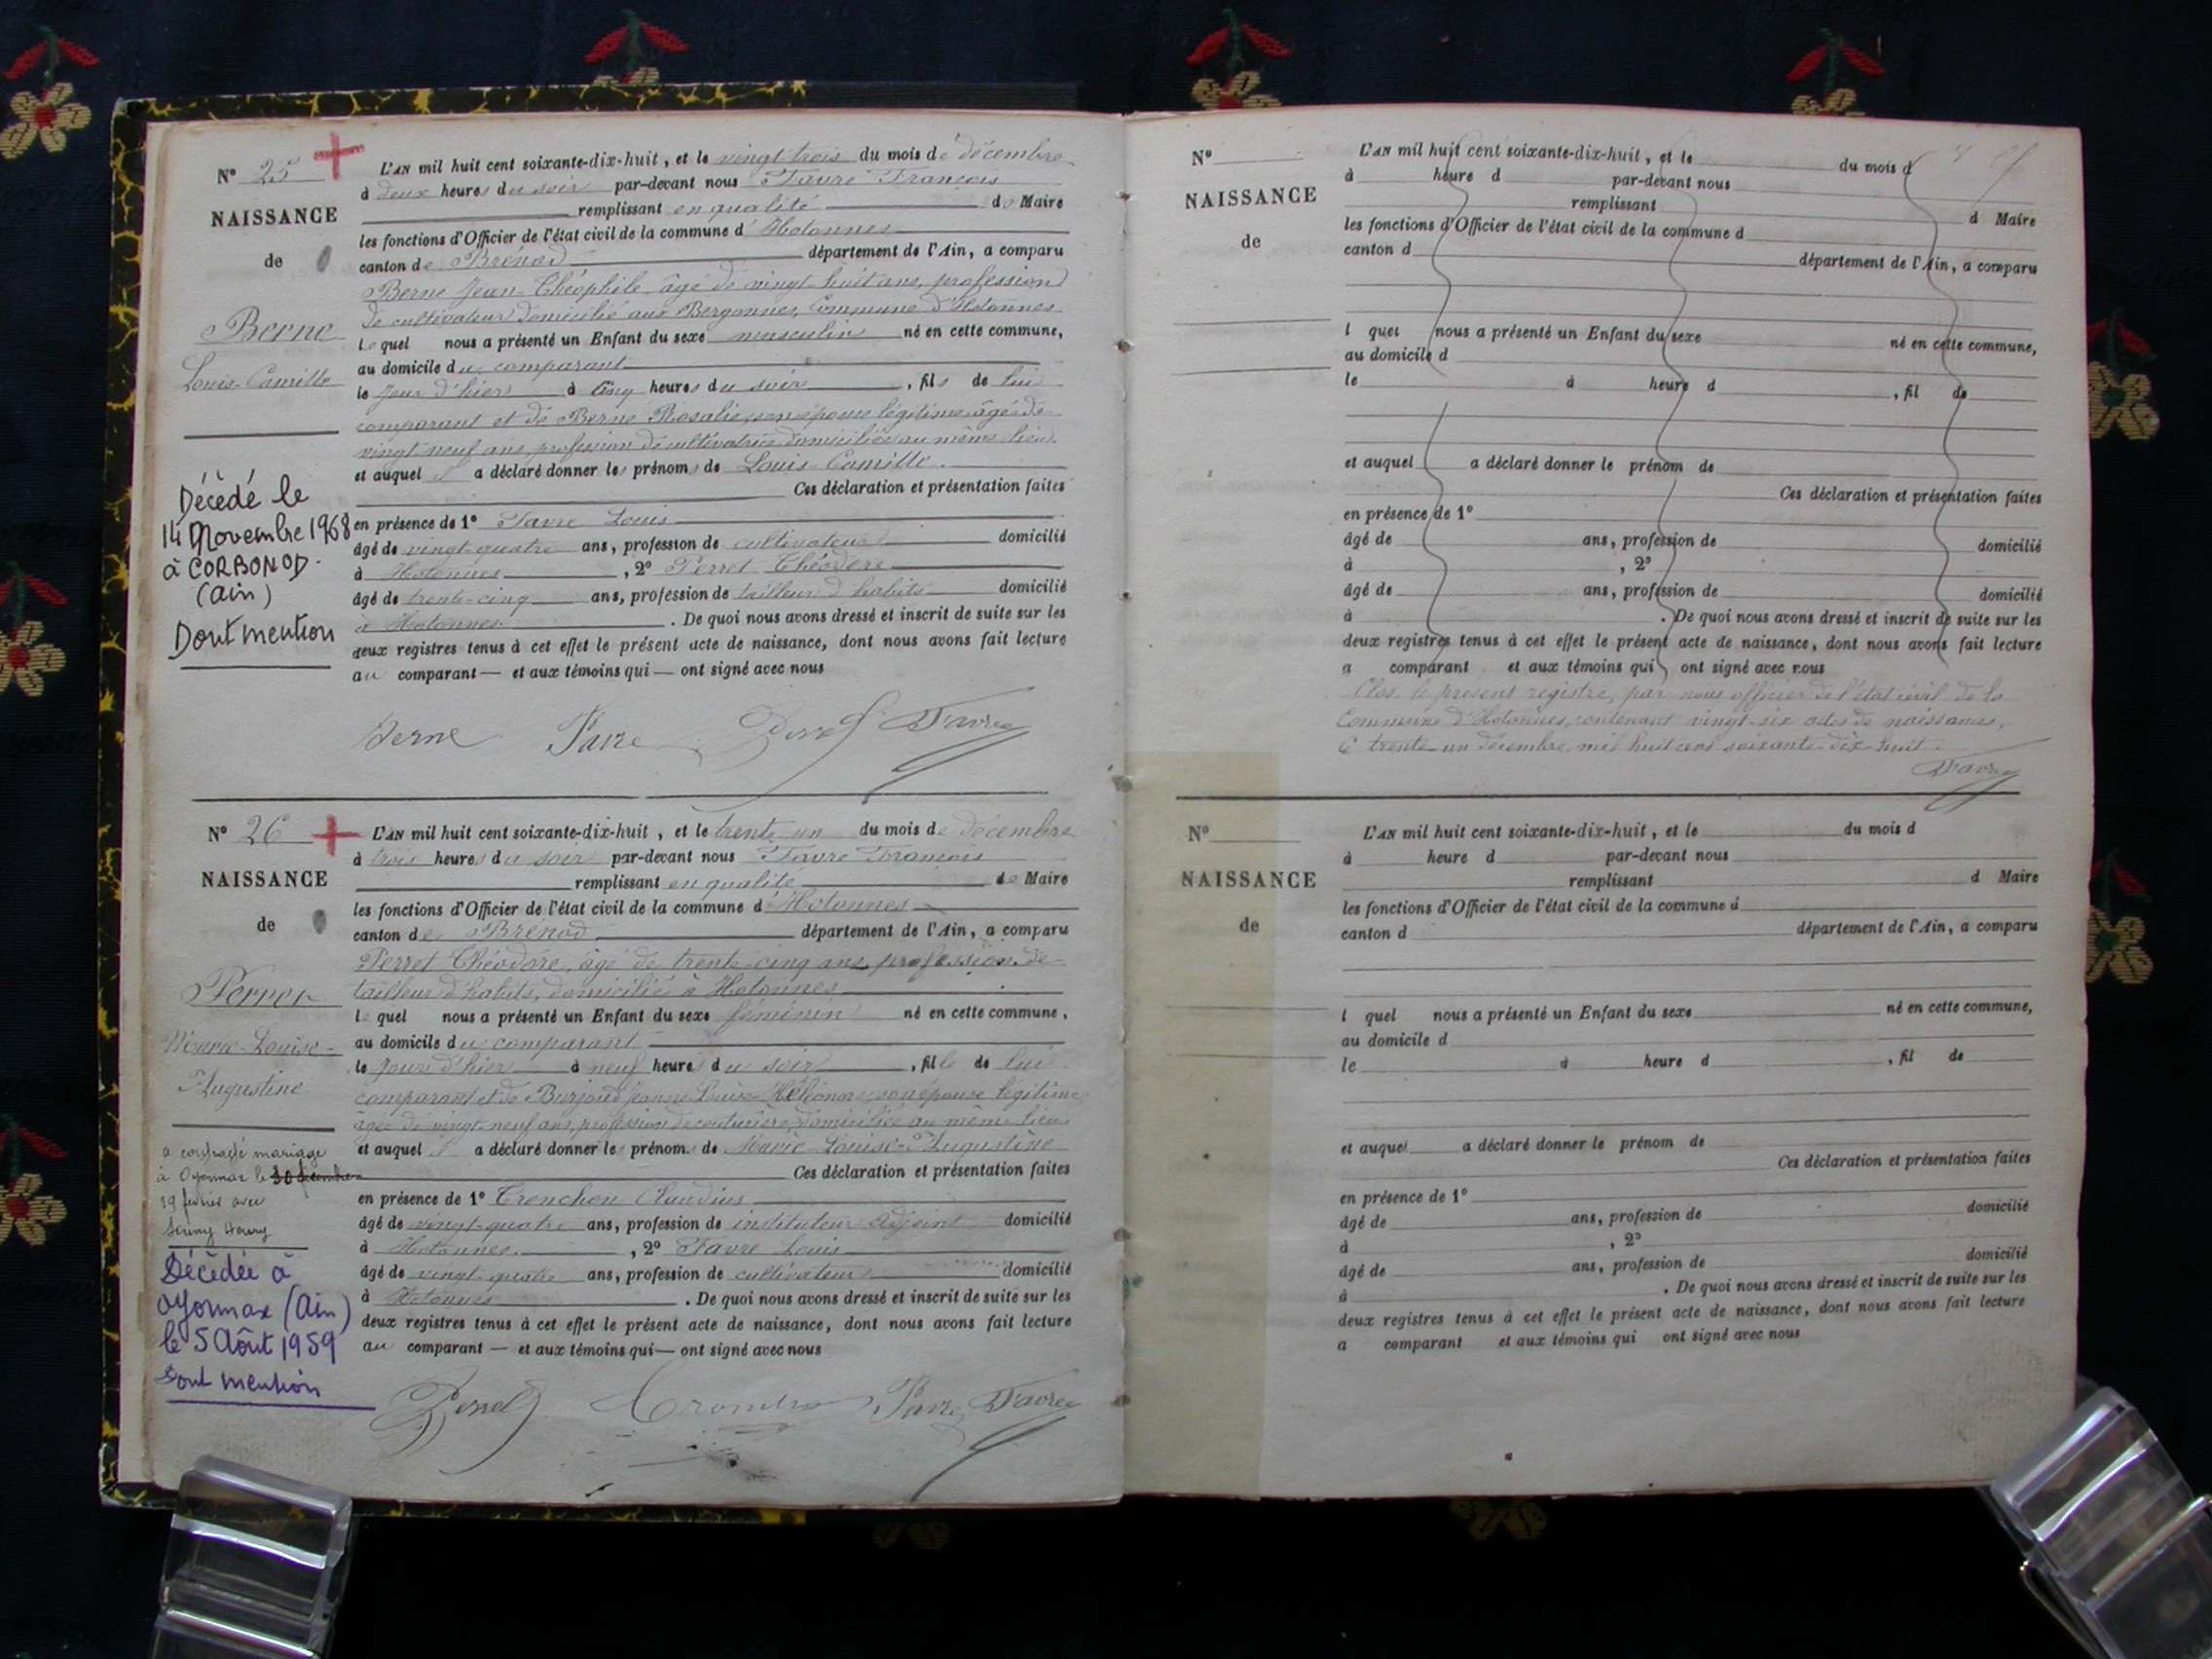 N° 25
NAISSANCE
de
Berne
Louis-Camille
Décédé le
14 Novembre 1968
à CORBONOD.
(ain)
Dont mention
L'AN mil huit cent soixante-dix-huit, et le vingt trois du mois de décembre
à deux heures du soir par-devant nous Favre François
remplissant en qualité de Maire
les fonctions d'Officier de l'état civil de la commune d'Hotonnes
canton de Brénod département de l'Ain, a comparu
Berne Jean-Théophile, âgé de vingt-huit ans, profession
de cultivateur domicilié aux Bergonnes, Commune d'Hotonnes
lequel nous a présenté un Enfant du sexe masculin né en cette commune,
au domicile du comparant
le jour d'hier à cinq heures du soir, fils de lui
comparant et de Berne Rosalie, son épouse légitime, âgée de
vingt-neuf ans, profession de cultivatrice domiciliée au même lieu.
et auquel il a déclaré donner les prénoms de Louis Camille.
Ces déclaration et présentation faites
en présence de 1° Favre Louis
âgé de vingt-quatre ans, profession de cultivateur domicilié
à Hotonnes, 2° Perret Théodore
âgé de trente-cinq ans, profession de tailleur d'habits domicilié
à Hotonnes. De quoi nous avons dressé et inscrit de suite sur les
deux registres tenus à cet effet le présent acte de naissance, dont nous avons fait lecture
au comparant — et aux témoins qui — ont signé avec nous
Berne Favre Perret Favre
N° 26
NAISSANCE
de
Perret
Marie-Louise-
Augustine
a contracté mariage
à Oyonnax le 30 décembre
19 février avec
Henry
Décédée à
Oyonnax (Ain)
le 5 Août 1959
Dont mention
L'AN mil huit cent soixante-dix-huit, et le trente-un du mois de décembre
à trois heures du soir par-devant nous Favre François
remplissant en qualité de Maire
les fonctions d'Officier de l'état civil de la commune d'Hotonnes
canton de Brénod département de l'Ain, a comparu
Perret Théodore, âgé de trente-cinq ans, profession de
tailleur d'habits, domicilié à Hotonnes
lequel nous a présenté un Enfant du sexe féminin né en cette commune,
au domicile du comparant
le jour d'hier à neuf heures du soir, fille de lui
comparant et de Burjoud Jeanne Louise Héléonore, son épouse légitime
âgée de vingt-neuf ans, profession de couturière, domiciliée au même lieu
et auquel il a déclaré donner le prénom de Marie-Louise-Augustine
Ces déclaration et présentation faites
en présence de 1° Tronchon Claudius
âgé de vingt-quatre ans, profession de instituteur adjoint domicilié
à Hotonnes, 2° Favre Louis
âgé de vingt-quatre ans, profession de cultivateur domicilié
à Hotonnes. De quoi nous avons dressé et inscrit de suite sur les
deux registres tenus à cet effet le présent acte de naissance, dont nous avons fait lecture
au comparant — et aux témoins qui — ont signé avec nous
Perret Favre Favre
N°
NAISSANCE
de
L'AN mil huit cent soixante-dix-huit, et le du mois d
à heure d par-devant nous
remplissant d Maire
les fonctions d'Officier de l'état civil de la commune d
canton d département de l'Ain, a comparu
l quel nous a présenté un Enfant du sexe né en cette commune,
au domicile d
le à heure d , fil de
et auquel a déclaré donner le prénom de
Ces déclaration et présentation faites
en présence de 1°
âgé de ans, profession de domicilié
à , 2°
âgé de ans, profession de domicilié
à . De quoi nous avons dressé et inscrit de suite sur les
deux registres tenus à cet effet le présent acte de naissance, dont nous avons fait lecture
a comparant et aux témoins qui ont signé avec nous
Clos le présent registre, par nous officier de l'état civil de la
Commune d'Hotonnes, contenant vingt-six actes de naissances,
ce trente-un décembre mil huit cent soixante-dix-huit.
Favre
N°
NAISSANCE
de
L'AN mil huit cent soixante-dix-huit, et le du mois d
à heure d par-devant nous
remplissant d Maire
les fonctions d'Officier de l'état civil de la commune d
canton d département de l'Ain, a comparu
l quel nous a présenté un Enfant du sexe né en cette commune,
au domicile d
le à heure d , fil de
et auquel a déclaré donner le prénom de
Ces déclaration et présentation faites
en présence de 1°
âgé de ans, profession de domicilié
à , 2°
âgé de ans, profession de domicilié
à . De quoi nous avons dressé et inscrit de suite sur les
deux registres tenus à cet effet le présent acte de naissance, dont nous avons fait lecture
a comparant et aux témoins qui ont signé avec nous